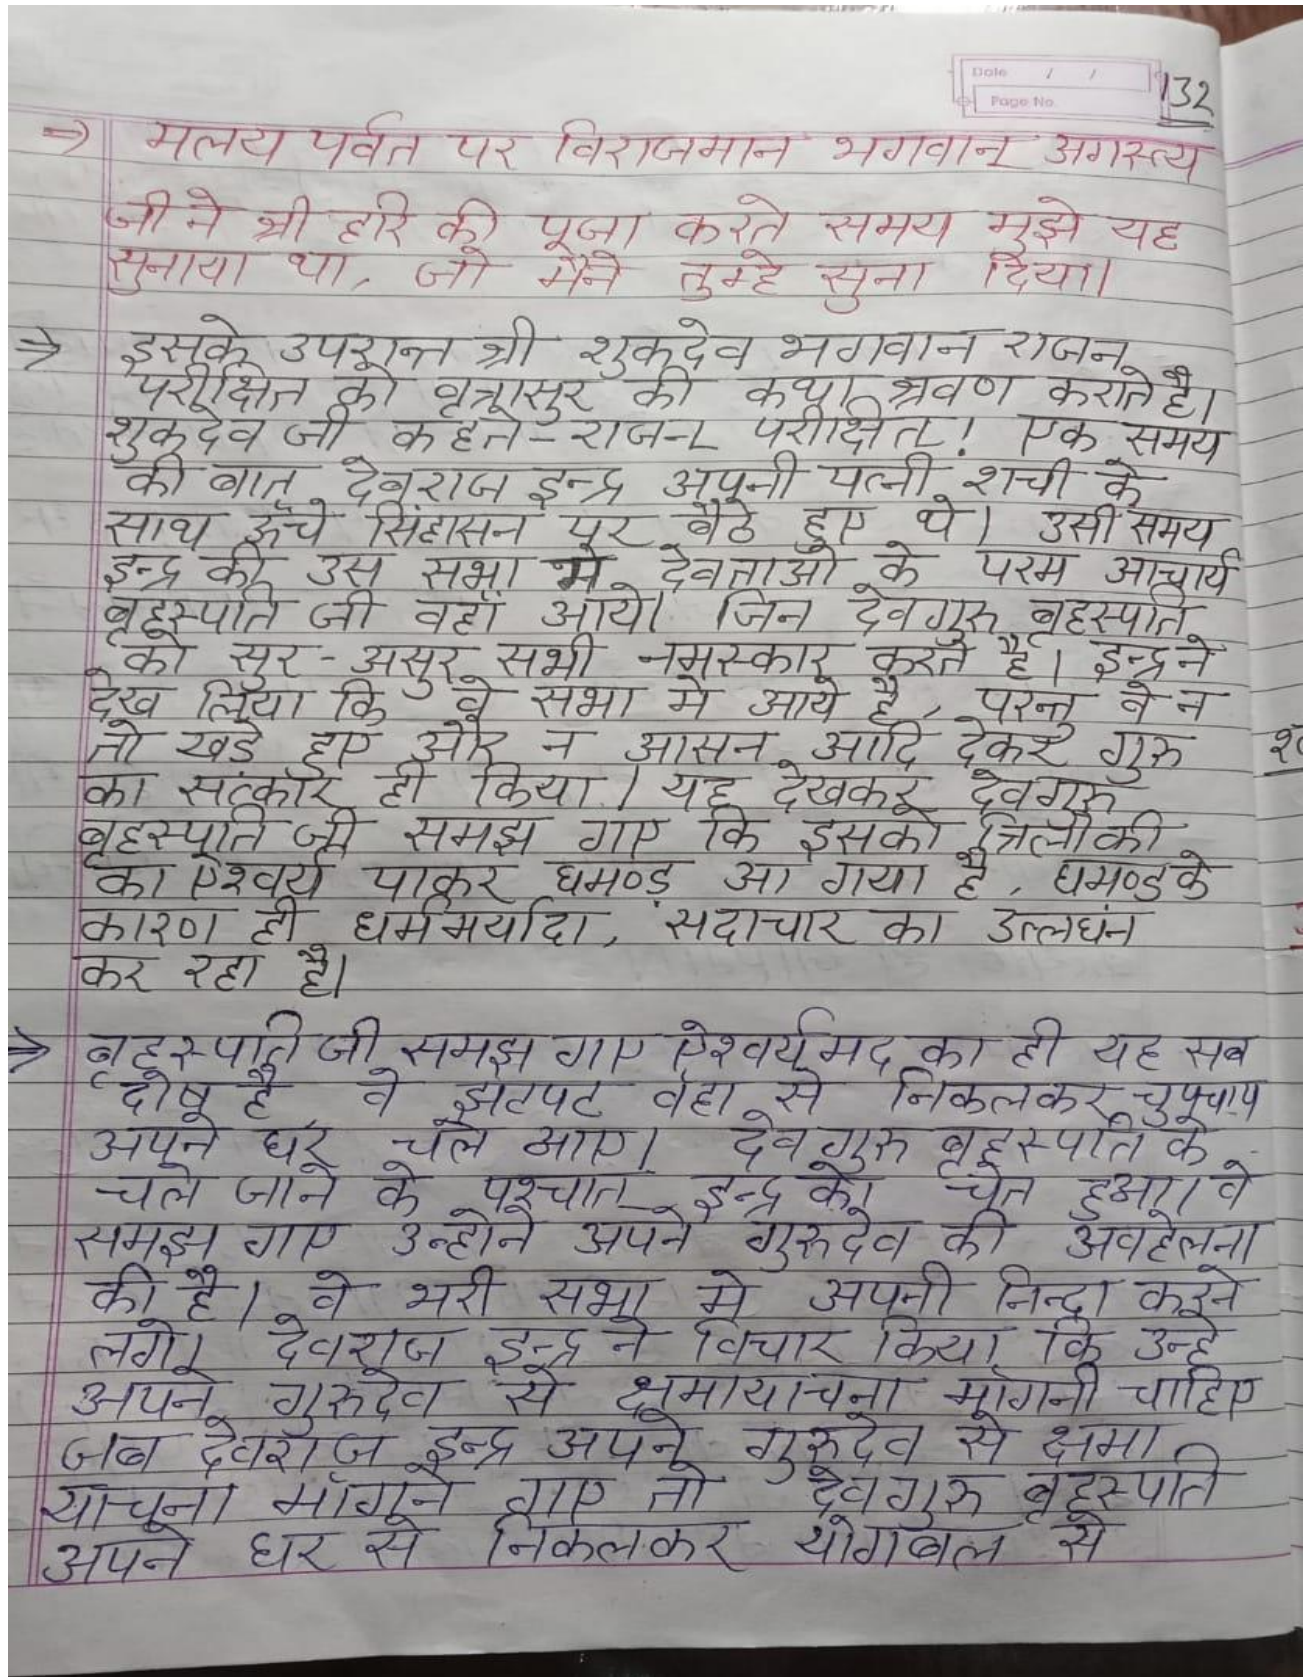 Date / /
Page No. 132
→ मलय पर्वत पर विराजमान भगवान् अगस्त्य
जी ने श्री हरि की पूजा करते समय मुझे यह
सुनाया था, जो मैंने तुम्हे सुना दिया।
→ इसके उपरान्त श्री शुकदेव भगवान राजन
परीक्षित को वृत्रासुर की कथा श्रवण कराते है।
शुकदेव जी कहते - राजन् परीक्षित! एक समय
की बात देवराज इन्द्र अपनी पत्नी शची के
साथ ऊँचे सिंहासन पर बैठे हुए थे। उसी समय
इन्द्र की उस सभा मे देवताओ के परम आचार्य
बृहस्पति जी वहाँ आये। जिन देवगुरु बृहस्पति
को सुर - असुर सभी नमस्कार करते है। इन्द्र ने
देख लिया कि वे सभा मे आये है, परन्तु वे न
तो खडे हुए और न आसन आदि देकर गुरु
का सत्कार ही किया। यह देखकर देवगुरु
बृहस्पति जी समझ गए कि इसको त्रिलोकी
का ऐश्वर्य पाकर घमण्ड आ गया है, घमण्ड के
कारण ही धर्ममर्यादा, सदाचार का उल्लघंन
कर रहा है।
→ बृहस्पति जी समझ गए ऐश्वर्यमद का ही यह सब
दोष है, वे झटपट वहा से निकलकर चुपचाप
अपने घर चले आए। देवगुरु बृहस्पति के
चले जाने के पश्चात इन्द्र को चेत हुआ। वे
समझ गए उन्होने अपने गुरुदेव की अवहेलना
की है। वे भरी सभा मे अपनी निन्दा करने
लगे। देवराज इन्द्र ने विचार किया कि उन्हे
अपने गुरुदेव से क्षमायाचना माँगनी चाहिए
जब देवराज इन्द्र अपने गुरुदेव से क्षमा
याचना माँगने गए तो देवगुरु बृहस्पति
अपने घर से निकलकर योगबल से